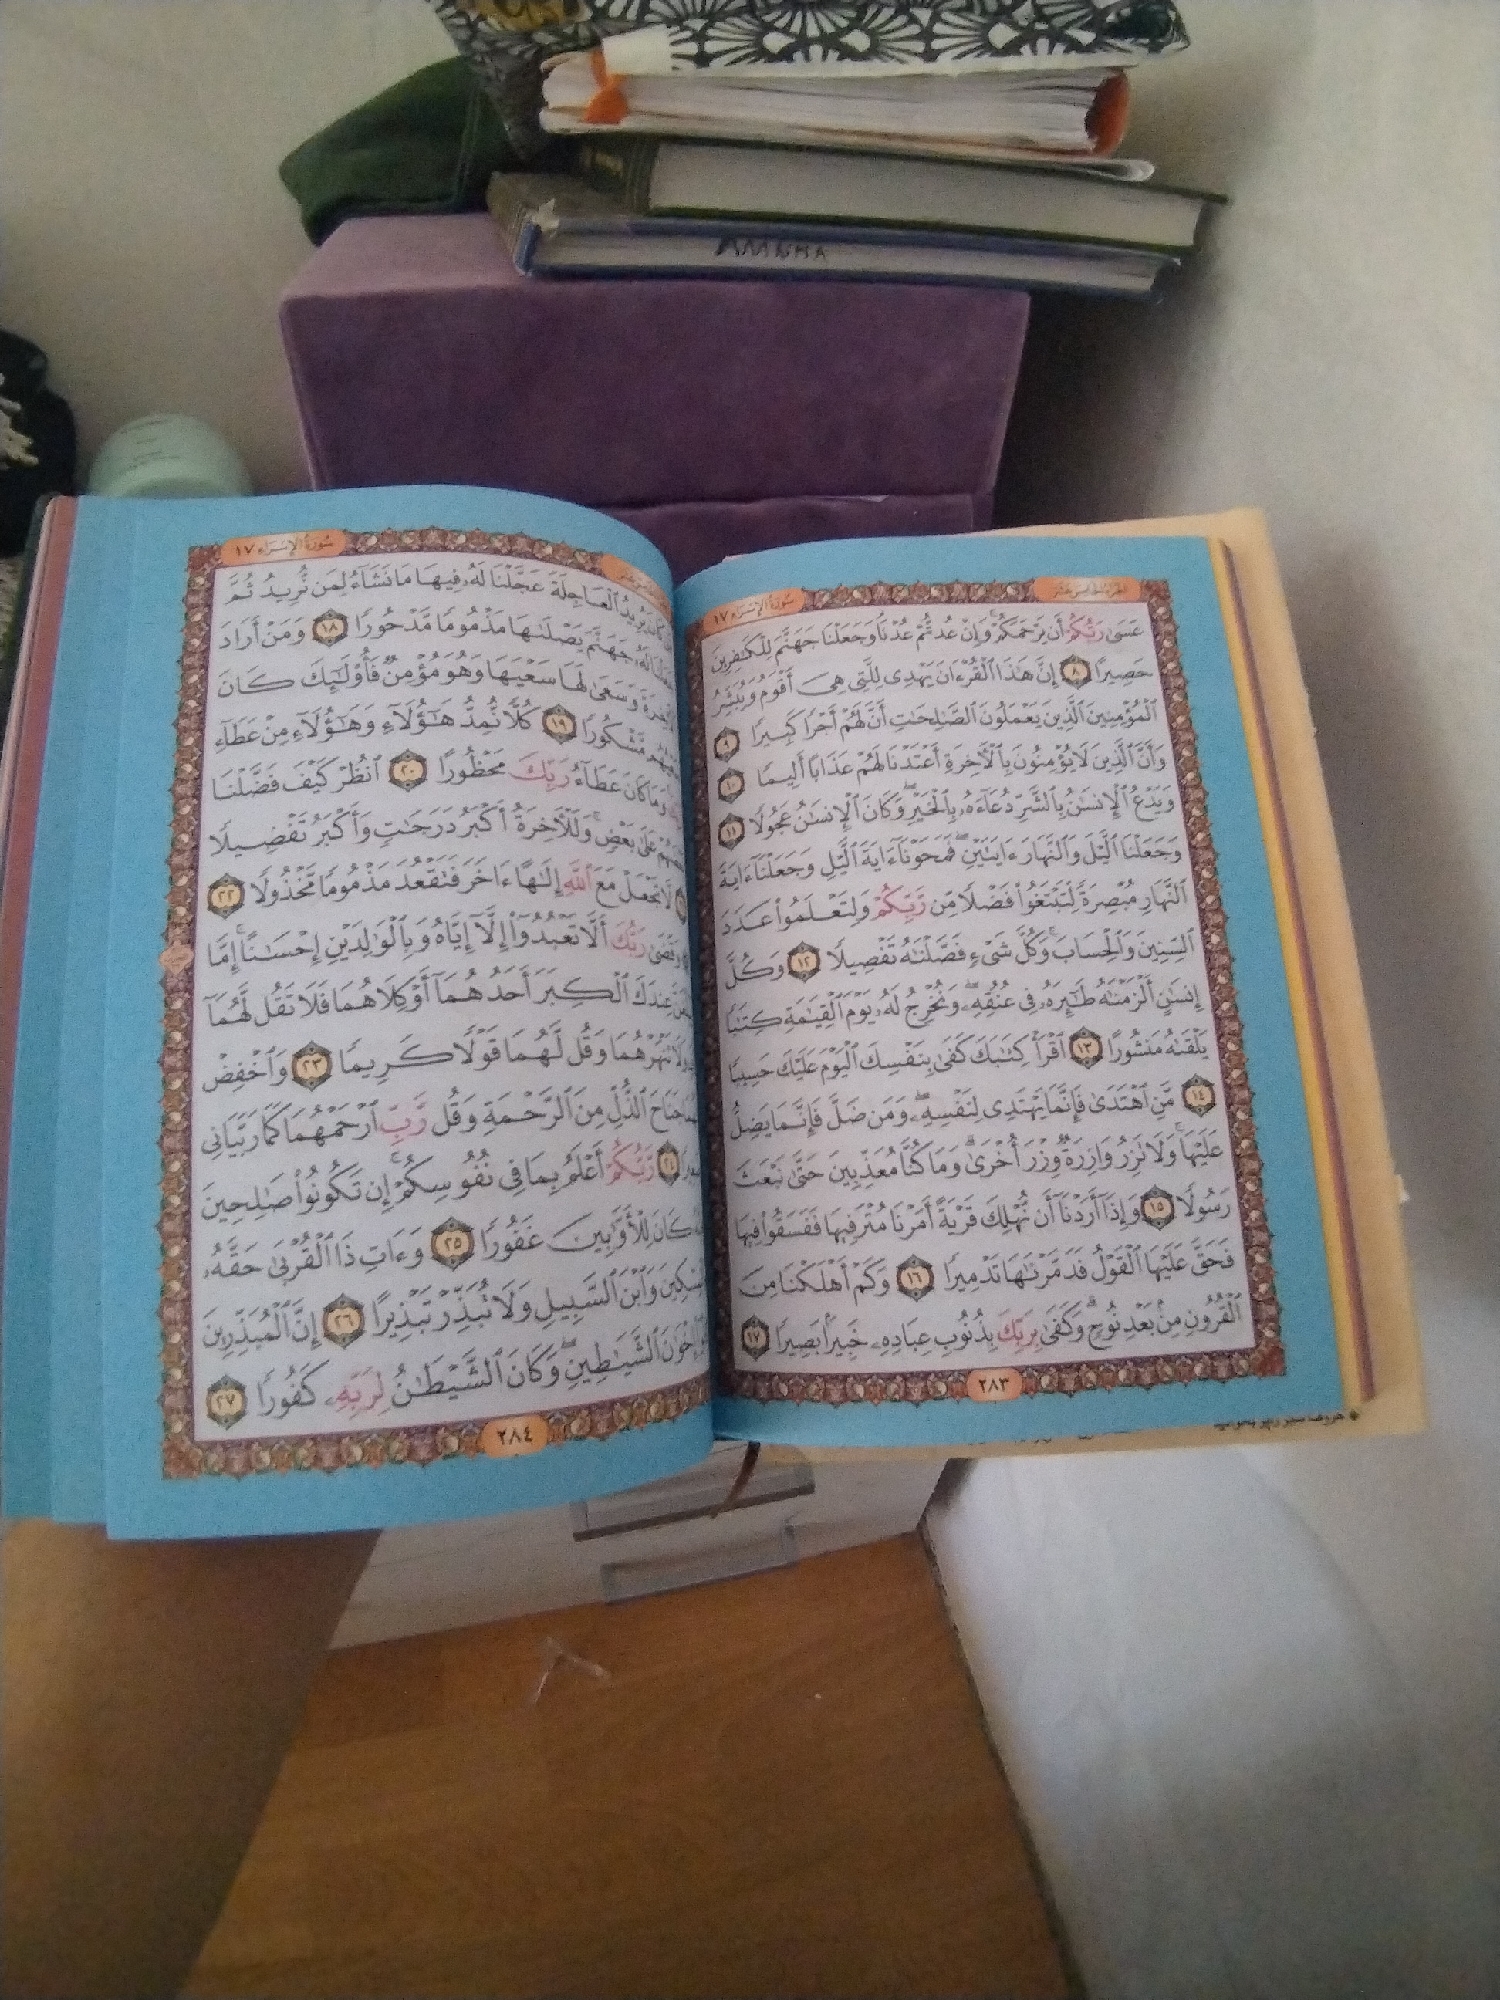 AMINA
سُورَةُ الإِسْرَاءِ ١٧
عَسَىٰ رَبُّكُمْ أَن يَرْحَمَكُمْ ۚ وَإِنْ عُدتُّمْ عُدْنَا ۘ وَجَعَلْنَا جَهَنَّمَ لِلْكَٰفِرِينَ
حَصِيرًا ٨ إِنَّ هَٰذَا ٱلْقُرْءَانَ يَهْدِى لِلَّتِى هِىَ أَقْوَمُ وَيُبَشِّرُ
ٱلْمُؤْمِنِينَ ٱلَّذِينَ يَعْمَلُونَ ٱلصَّٰلِحَٰتِ أَنَّ لَهُمْ أَجْرًا كَبِيرًا ٩
وَأَنَّ ٱلَّذِينَ لَا يُؤْمِنُونَ بِٱلْءَاخِرَةِ أَعْتَدْنَا لَهُمْ عَذَابًا أَلِيمًا ١٠
وَيَدْعُ ٱلْإِنسَٰنُ بِٱلشَّرِّ دُعَآءَهُۥ بِٱلْخَيْرِ ۖ وَكَانَ ٱلْإِنسَٰنُ عَجُولًا ١١
وَجَعَلْنَا ٱلَّيْلَ وَٱلنَّهَارَ ءَايَتَيْنِ ۖ فَمَحَوْنَآ ءَايَةَ ٱلَّيْلِ وَجَعَلْنَآ ءَايَةَ
ٱلنَّهَارِ مُبْصِرَةً لِّتَبْتَغُوا۟ فَضْلًا مِّن رَّبِّكُمْ وَلِتَعْلَمُوا۟ عَدَدَ
ٱلسِّنِينَ وَٱلْحِسَابَ ۚ وَكُلَّ شَىْءٍ فَصَّلْنَٰهُ تَفْصِيلًا ١٢ وَكُلَّ
إِنسَٰنٍ أَلْزَمْنَٰهُ طَٰٓئِرَهُۥ فِى عُنُقِهِۦ ۖ وَنُخْرِجُ لَهُۥ يَوْمَ ٱلْقِيَٰمَةِ كِتَٰبًا
يَلْقَىٰهُ مَنشُورًا ١٣ ٱقْرَأْ كِتَٰبَكَ كَفَىٰ بِنَفْسِكَ ٱلْيَوْمَ عَلَيْكَ حَسِيبًا
١٤ مَّنِ ٱهْتَدَىٰ فَإِنَّمَا يَهْتَدِى لِنَفْسِهِۦ ۖ وَمَن ضَلَّ فَإِنَّمَا يَضِلُّ
عَلَيْهَا ۚ وَلَا تَزِرُ وَازِرَةٌ وِزْرَ أُخْرَىٰ ۗ وَمَا كُنَّا مُعَذِّبِينَ حَتَّىٰ نَبْعَثَ
رَسُولًا ١٥ وَإِذَآ أَرَدْنَآ أَن نُّهْلِكَ قَرْيَةً أَمَرْنَا مُتْرَفِيهَا فَفَسَقُوا۟ فِيهَا
فَحَقَّ عَلَيْهَا ٱلْقَوْلُ فَدَمَّرْنَٰهَا تَدْمِيرًا ١٦ وَكَمْ أَهْلَكْنَا مِنَ
ٱلْقُرُونِ مِنۢ بَعْدِ نُوحٍ ۗ وَكَفَىٰ بِرَبِّكَ بِذُنُوبِ عِبَادِهِۦ خَبِيرًۢا بَصِيرًا ١٧
٢٨٣
سُورَةُ الإِسْرَاءِ ١٧
كَانَ يُرِيدُ ٱلْعَاجِلَةَ عَجَّلْنَا لَهُۥ فِيهَا مَا نَشَآءُ لِمَن نُّرِيدُ ثُمَّ
جَعَلْنَا لَهُۥ جَهَنَّمَ يَصْلَىٰهَا مَذْمُومًا مَّدْحُورًا ١٨ وَمَنْ أَرَادَ
وَسَعَىٰ لَهَا سَعْيَهَا وَهُوَ مُؤْمِنٌ فَأُو۟لَٰٓئِكَ كَانَ
مَّشْكُورًا ١٩ كُلًّا نُّمِدُّ هَٰٓؤُلَآءِ وَهَٰٓؤُلَآءِ مِنْ عَطَآءِ
وَمَا كَانَ عَطَآءُ رَبِّكَ مَحْظُورًا ٢٠ ٱنظُرْ كَيْفَ فَضَّلْنَا
عَلَىٰ بَعْضٍ ۚ وَلَلْءَاخِرَةُ أَكْبَرُ دَرَجَٰتٍ وَأَكْبَرُ تَفْضِيلًا
لَّا تَجْعَلْ مَعَ ٱللَّهِ إِلَٰهًا ءَاخَرَ فَتَقْعُدَ مَذْمُومًا مَّخْذُولًا ٢٢
وَقَضَىٰ رَبُّكَ أَلَّا تَعْبُدُوٓا۟ إِلَّآ إِيَّاهُ وَبِٱلْوَٰلِدَيْنِ إِحْسَٰنًا ۚ إِمَّا
عِندَكَ ٱلْكِبَرَ أَحَدُهُمَآ أَوْ كِلَاهُمَا فَلَا تَقُل لَّهُمَآ
وَلَا تَنْهَرْهُمَا وَقُل لَّهُمَا قَوْلًا كَرِيمًا ٢٣ وَٱخْفِضْ
جَنَاحَ ٱلذُّلِّ مِنَ ٱلرَّحْمَةِ وَقُل رَّبِّ ٱرْحَمْهُمَا كَمَا رَبَّيَانِى
٢٤ رَّبُّكُمْ أَعْلَمُ بِمَا فِى نُفُوسِكُمْ ۚ إِن تَكُونُوا۟ صَٰلِحِينَ
كَانَ لِلْأَوَّٰبِينَ غَفُورًا ٢٥ وَءَاتِ ذَا ٱلْقُرْبَىٰ حَقَّهُۥ
وَٱبْنَ ٱلسَّبِيلِ وَلَا تُبَذِّرْ تَبْذِيرًا ٢٦ إِنَّ ٱلْمُبَذِّرِينَ
إِخْوَٰنَ ٱلشَّيَٰطِينِ ۖ وَكَانَ ٱلشَّيْطَٰنُ لِرَبِّهِۦ كَفُورًا ٢٧
٢٨٤